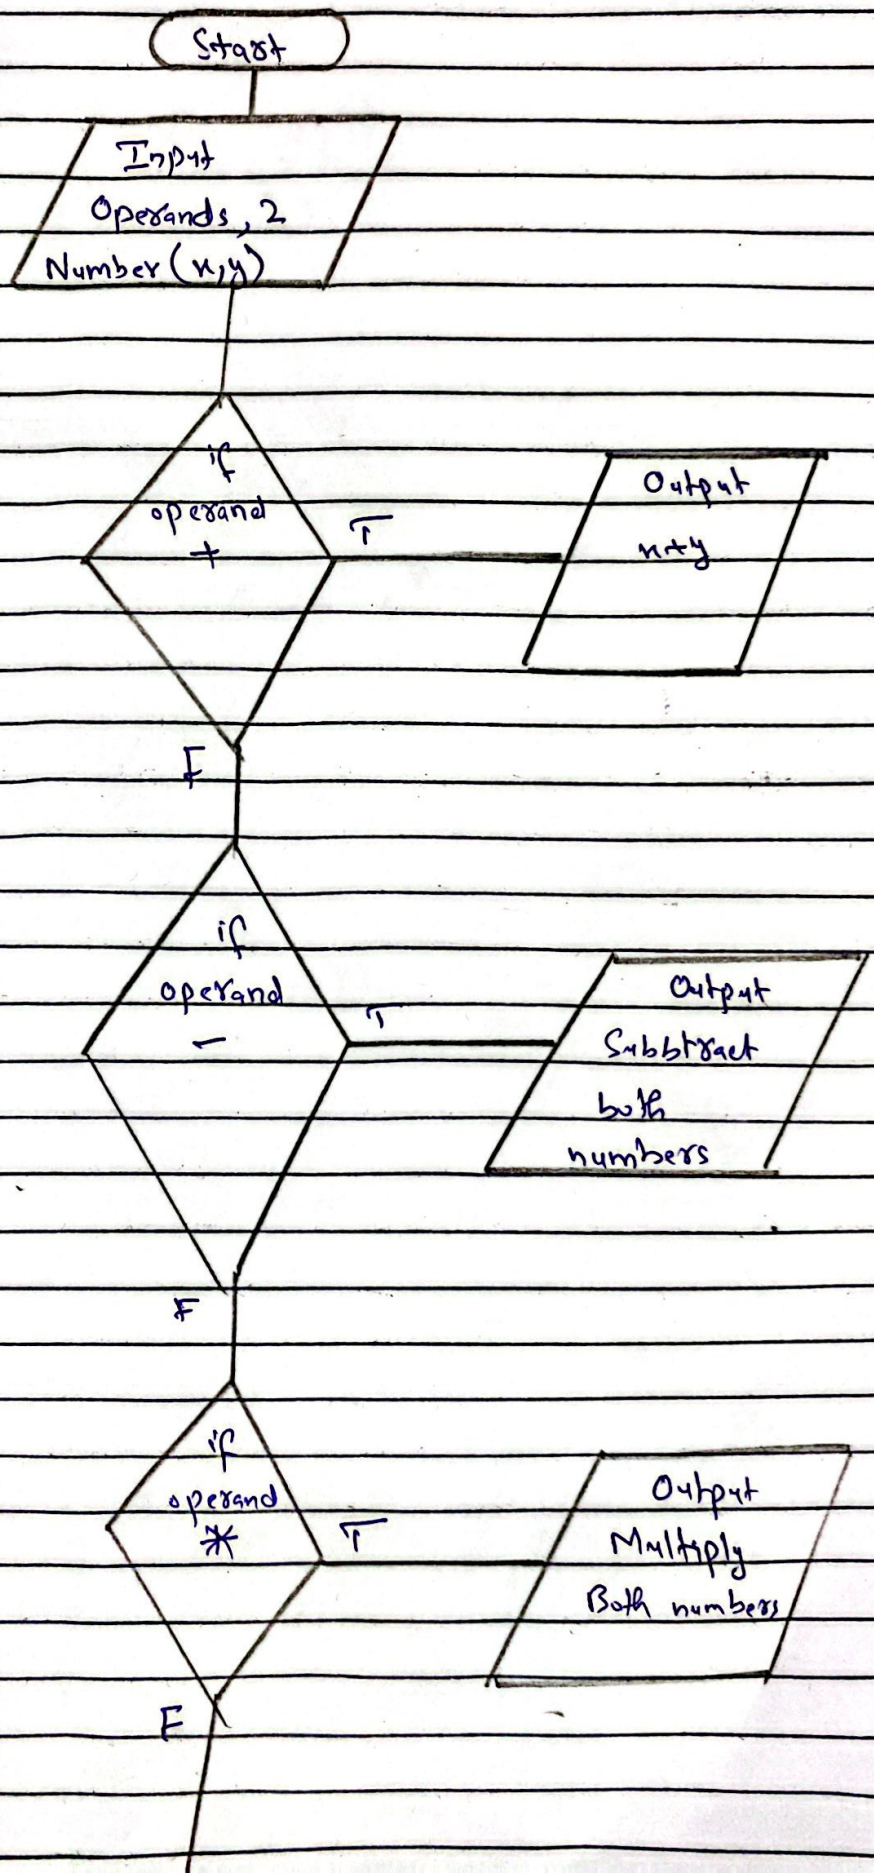 Start
Input
Operands, 2
Number (x,y)
if
operand
+
T
Output
x+y
F
if
operand
-
T
Output
Subbtract
both
numbers
F
if
operand
*
T
Output
Multiply
Both numbers
F